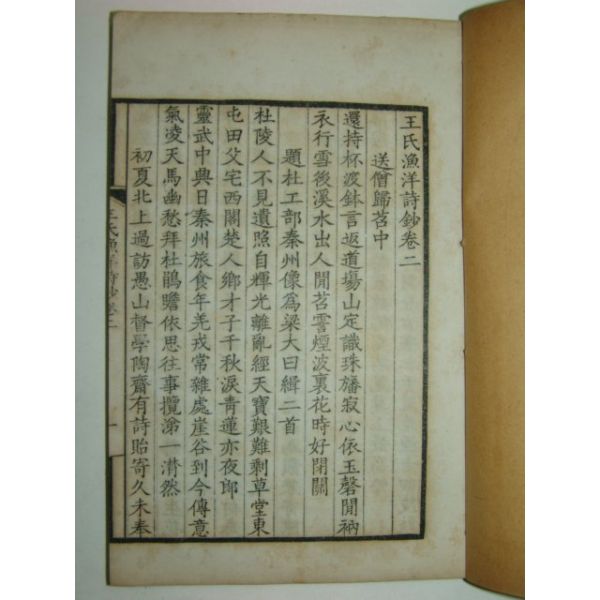 王氏漁洋詩鈔卷二
送僧歸苕中
還持杯渡鉢言返道場山定識珠旛寂心依玉磬閒衲
衣行雪後溪水出人間苕霅煙波裏花時好閉關
題杜工部秦州像為梁大曰緝二首
杜陵人不見遺照自輝光離亂經天寶艱難剩草堂東
屯田父宅西閣楚人鄉才子千秋淚青蓮亦夜郎
靈武中興日秦州旅食年羌戎常雜處崖谷到今傳意
氣凌天馬幽愁拜杜鵑瞻依思往事攬涕一潸然
初夏北上過訪愚山督學陶齋有詩貽寄久未奉
王氏漁洋詩鈔卷二
一